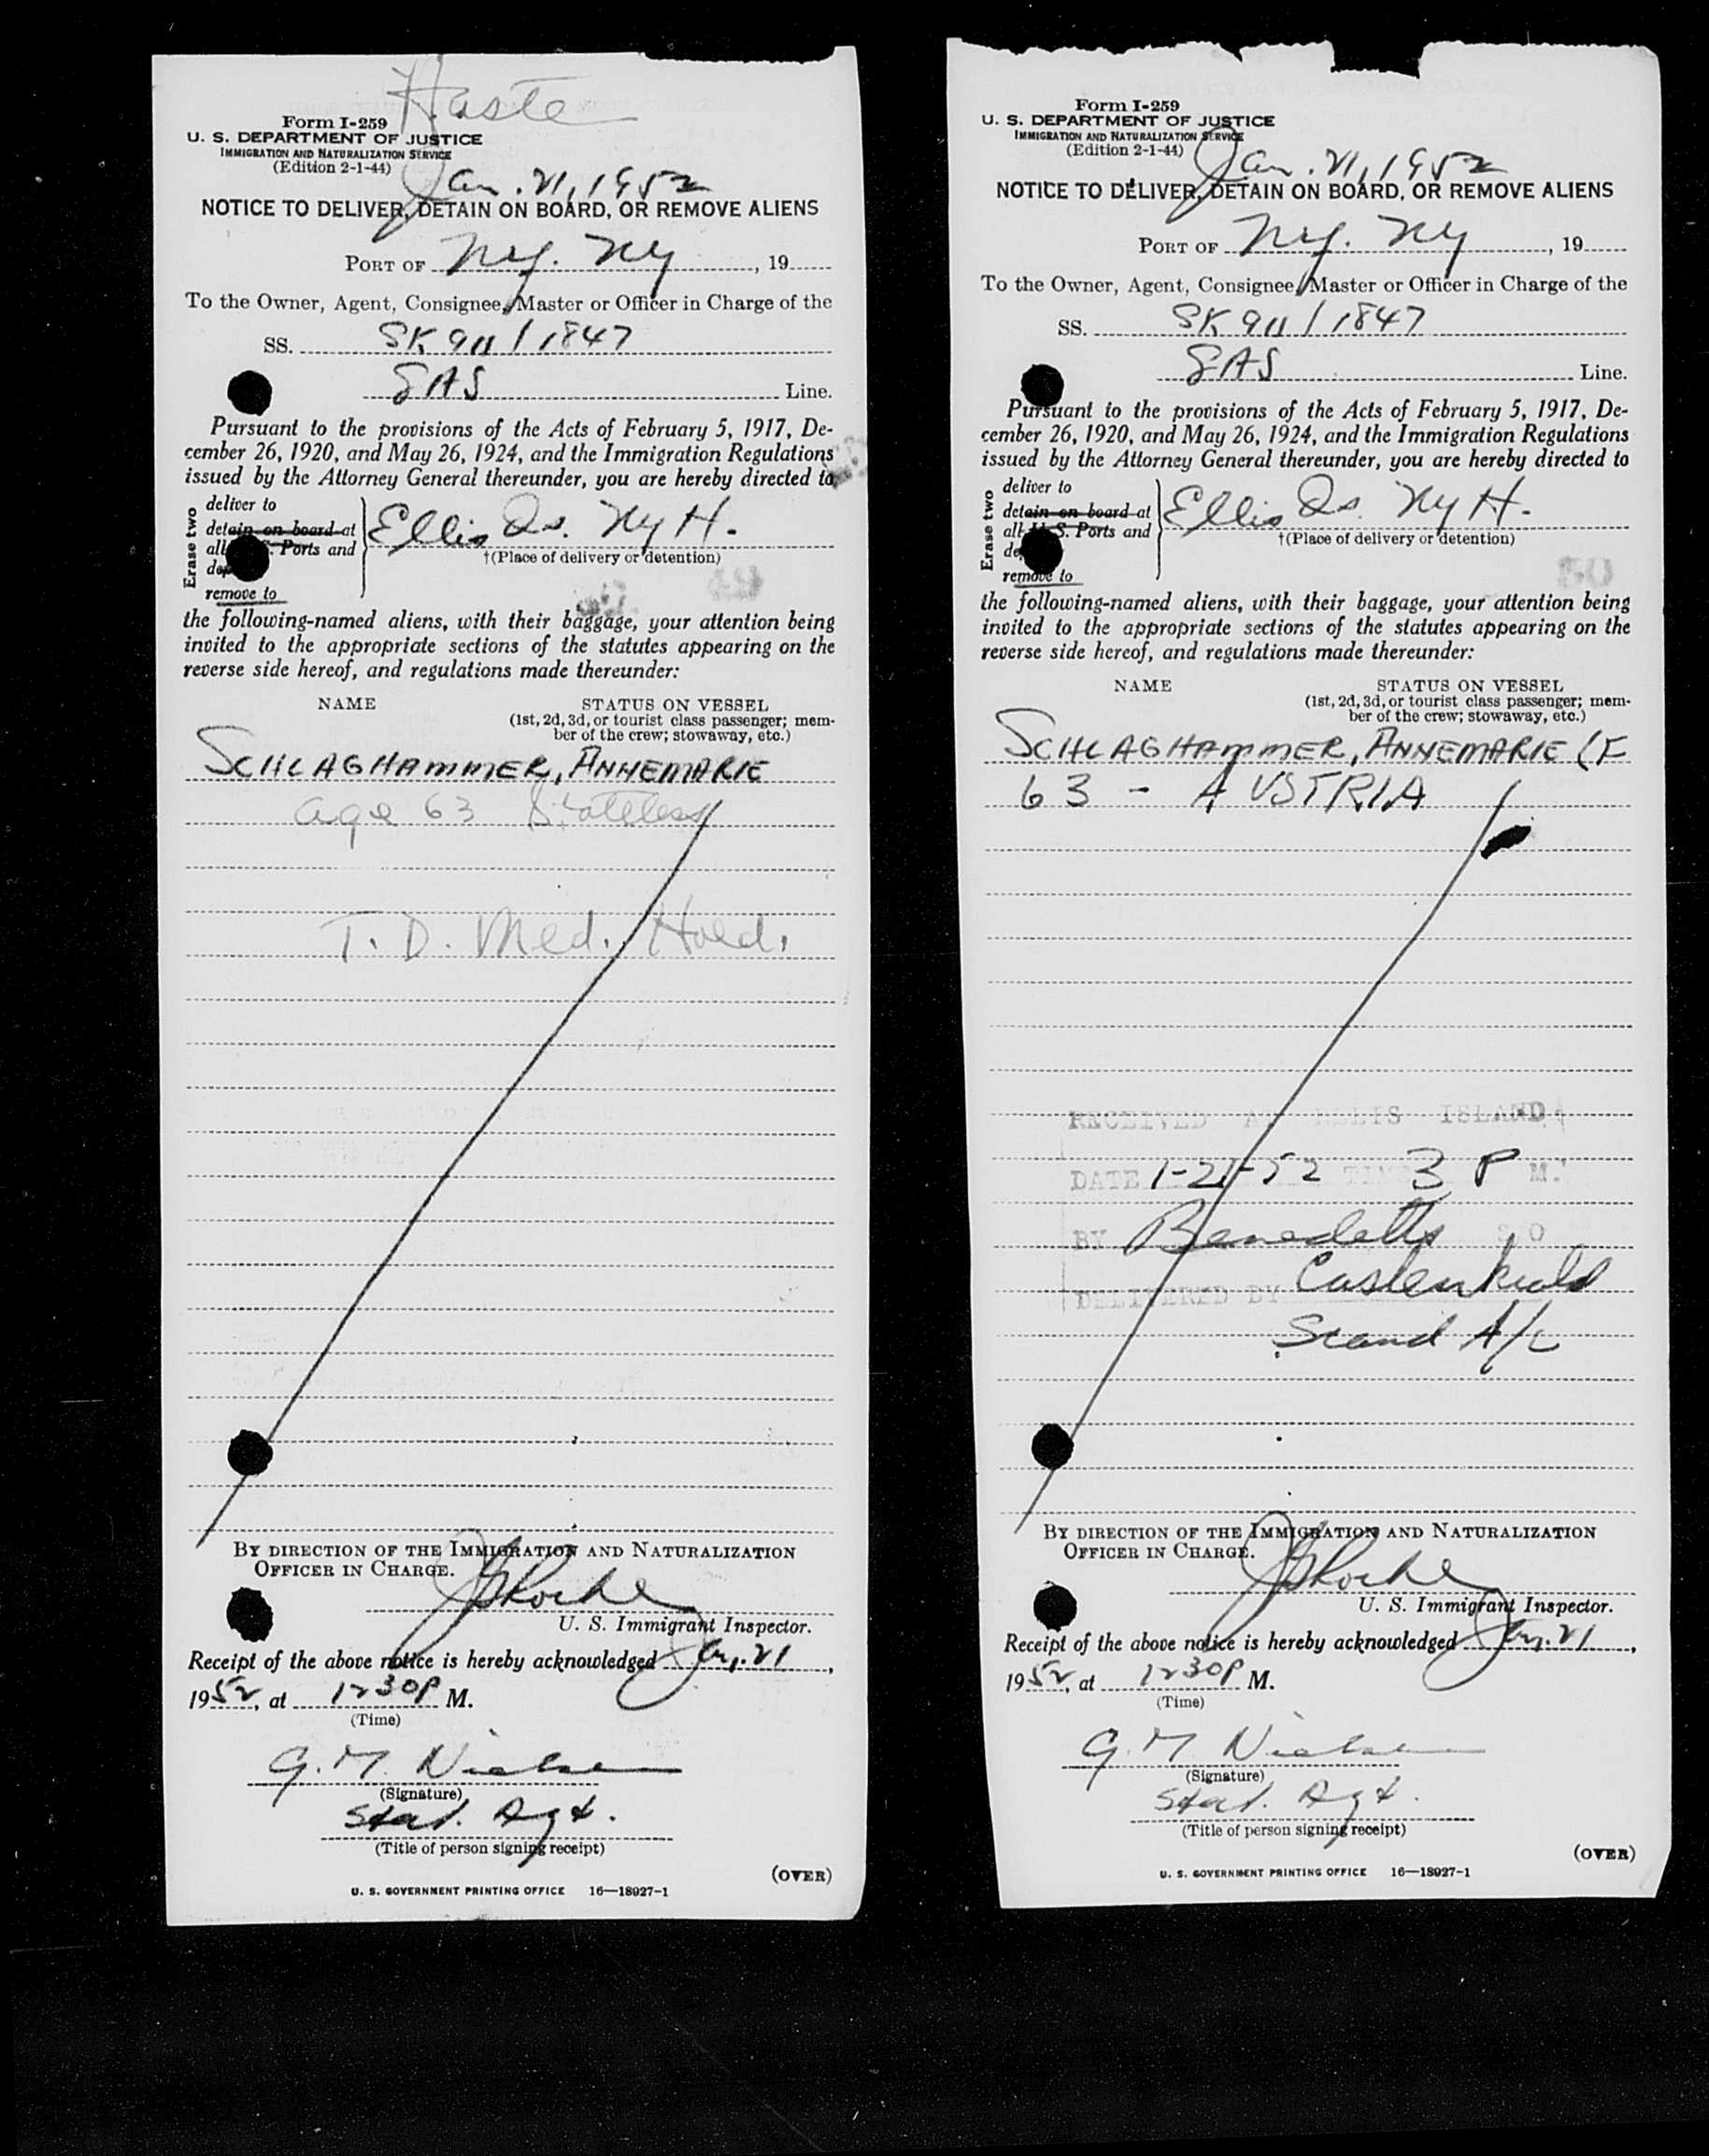 Haste
Form I-259
U. S. DEPARTMENT OF JUSTICE
IMMIGRATION AND NATURALIZATION SERVICE
(Edition 2-1-44)
Jan. 21, 1952
NOTICE TO DELIVER, DETAIN ON BOARD, OR REMOVE ALIENS
PORT OF Ny. Ny, 19
To the Owner, Agent, Consignee, Master or Officer in Charge of the
SS. SK 911 / 1847
SAS Line.
Pursuant to the provisions of the Acts of February 5, 1917, De-
cember 26, 1920, and May 26, 1924, and the Immigration Regulations
issued by the Attorney General thereunder, you are hereby directed to
Erase two
deliver to
detain on board at
all Ports and
remove to
Ellis Is. Ny H.
†(Place of delivery or detention)
the following-named aliens, with their baggage, your attention being
invited to the appropriate sections of the statutes appearing on the
reverse side hereof, and regulations made thereunder:
NAME STATUS ON VESSEL
(1st, 2d, 3d, or tourist class passenger; mem-
ber of the crew; stowaway, etc.)
SCHLAGHAMMER, ANNEMARIE
age 63 Stateless
T. D. Med. Hold.
BY DIRECTION OF THE IMMIGRATION AND NATURALIZATION
OFFICER IN CHARGE.
U. S. Immigrant Inspector.
Receipt of the above notice is hereby acknowledged Jan. 21,
1952, at 1230P M.
(Time)
G. M. Nielsen
(Signature)
Stat. Agt.
(Title of person signing receipt)
(OVER)
U. S. GOVERNMENT PRINTING OFFICE 16—18927-1
Form I-259
U. S. DEPARTMENT OF JUSTICE
IMMIGRATION AND NATURALIZATION SERVICE
(Edition 2-1-44)
Jan. 21, 1952
NOTICE TO DELIVER, DETAIN ON BOARD, OR REMOVE ALIENS
PORT OF Ny. Ny, 19
To the Owner, Agent, Consignee, Master or Officer in Charge of the
SS. SK 911 / 1847
SAS Line.
Pursuant to the provisions of the Acts of February 5, 1917, De-
cember 26, 1920, and May 26, 1924, and the Immigration Regulations
issued by the Attorney General thereunder, you are hereby directed to
Erase two
deliver to
detain on board at
all U. S. Ports and
remove to
Ellis Is. Ny H.
†(Place of delivery or detention)
the following-named aliens, with their baggage, your attention being
invited to the appropriate sections of the statutes appearing on the
reverse side hereof, and regulations made thereunder:
NAME STATUS ON VESSEL
(1st, 2d, 3d, or tourist class passenger; mem-
ber of the crew; stowaway, etc.)
SCHLAGHAMMER, ANNEMARIE (F
63 - AUSTRIA
RECEIVED AT ELLIS ISLAND
DATE 1-21-52 TIME 3 P M.
BY
DELIVERED BY
Scand A/L
BY DIRECTION OF THE IMMIGRATION AND NATURALIZATION
OFFICER IN CHARGE.
U. S. Immigrant Inspector.
Receipt of the above notice is hereby acknowledged Jan. 21,
1952, at 1230P M.
(Time)
G. M. Nielsen
(Signature)
Stat. Agt.
(Title of person signing receipt)
(OVER)
U. S. GOVERNMENT PRINTING OFFICE 16—18927-1